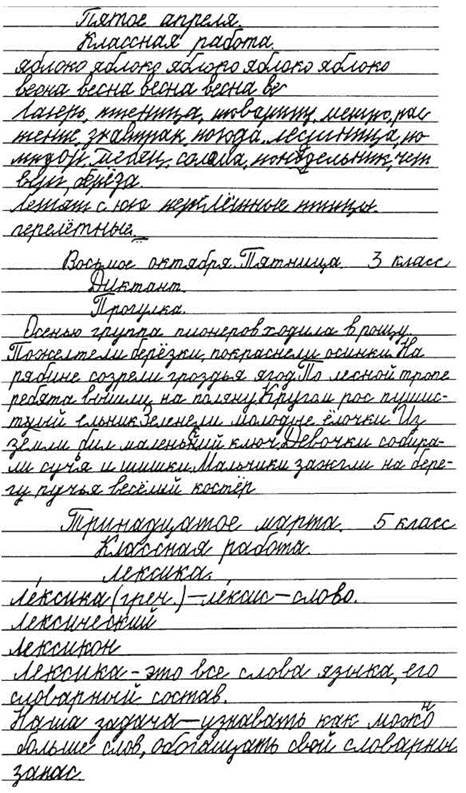 Пятое апреля.
Классная работа.
яблоко яблоко яблоко яблоко яблоко
весна весна весна весна ве
Лагерь, птеница, товарищ, метро, рас
тение, завтрак, погода, лесиница, по
мидор, ребец, солома, понедельник, чет
верг, берёза.
Летят с юга перелётные птицы.
перелётные.
Восьмое октября. Пятница. 3 класс
Диктант.
Прогулка.
Осенью группа пионеров ходила в рощу.
Пожелтели берёзки, покраснели осинки. На
рябине созрели гроздья ягод. По лесной тропе
ребята вышли на поляну. Кругом рос пушис-
тый ельник. Зеленели молодые ёлочки. Из
земли бил маленький ключ. Девочки собира-
ли сучья и шишки. Мальчики зажгли на бере-
гу ручья весёлый костёр
Тринадцатое марта. 5 класс
Классная работа.
Лексика.
Лексика (греч.) – лексис – слово.
лексический
лексикон
Лексика – это все слова языка, его
словарный состав.
Наша задача – узнавать как можно
больше слов, обогащать свой словарны
запас.